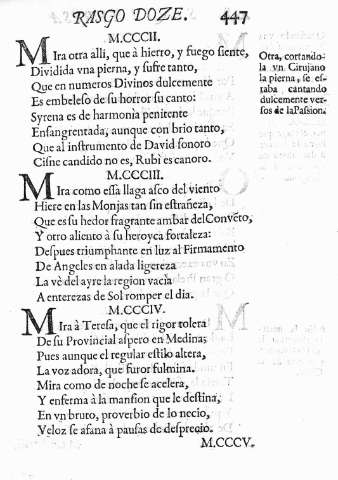 RASGO DOZE. 447
M.CCCII.
MIra otra alli, que à hierro, y fuego siente,
Dividida vna pierna, y sufre tanto,
Que en numeros Divinos dulcemente
Es embeleso de su horror su canto:
Syrena es de harmonia penitente
Ensangrentada, aunque con brio tanto,
Que al instrumento de David sonoro
Cisne candido no es, Rubi es canoro.
Otra, cortando-
la vn Cirujano
la pierna, se es-
taba cantando
dulcemente ver-
sos de la Passion.
M.CCCIII.
MIra como essa llaga asco del viento
Hiere en las Monjas tan sin estrañeza,
Que es su hedor fragrante ambar del Convẽto,
Y otro aliento à su heroyca fortaleza:
Despues triumphante en luz al Firmamento
De Angeles en alada ligereza
La vè del ayre la region vacìa
A enterezas de Sol romper el dia.
M.CCCIV.
MIra à Teresa, que el rigor tolera
De su Provincial aspero en Medina;
Pues aunque el regular estilo altera,
La voz adora, que furor fulmina.
Mira como de noche se acelera,
Y enferma à la mansion que le destina,
En vn bruto, proverbio de lo necio,
Veloz se afana à pausas de desprecio.
M.CCCV.